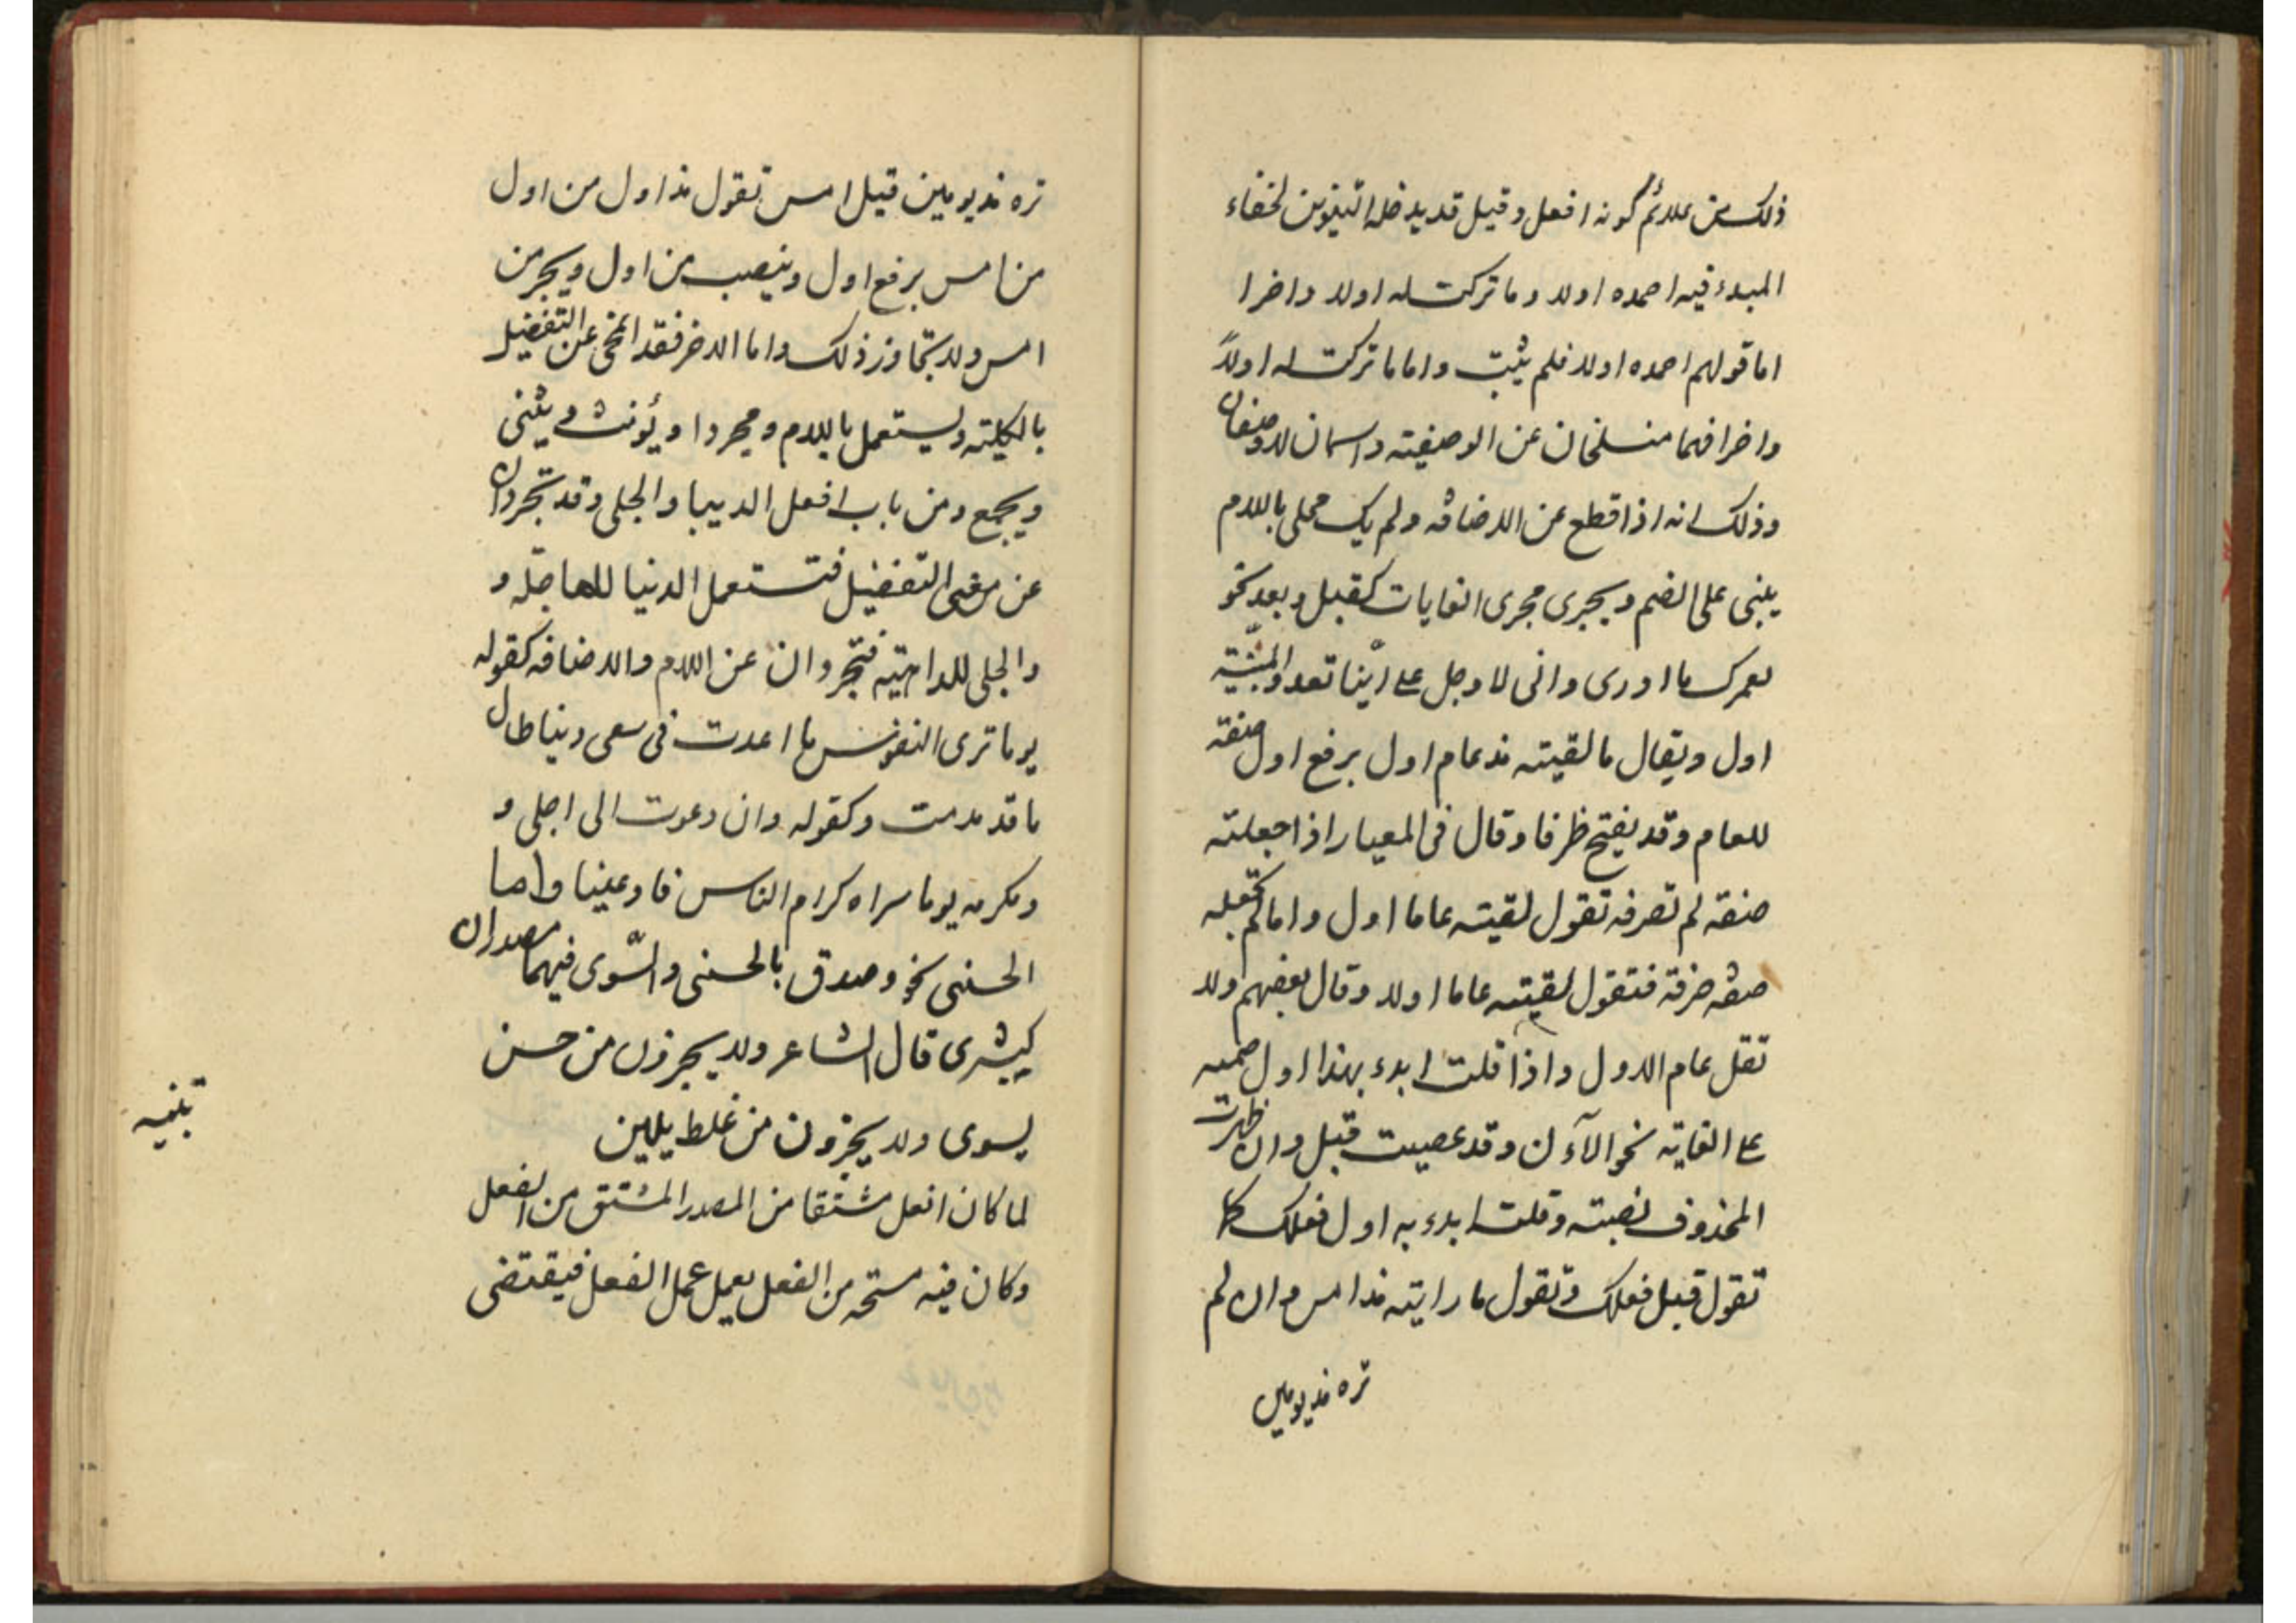 ذلك من علائم كونه افعل وقيل قد يدخله التنوين لخفاء
المبدء فيه احمده اولا وما تركت له اولا واخرا
اما قولهم احمده اولا فلم يثبت واما ما تركت له اولاً
واخرا فهما منسلخان عن الوصفية واسمان لا وصفان
وذلك انه اذا قطع عن الاضافة ولم يك محلى باللام
يبنى على الضم ويجرى مجرى الغايات كقبل وبعد نحو
لعمرك ما ادرى وانى لا وجل على اينا تعدو المنيّة
اول ويقال ما لقيته مذ عام اول برفع اول صفة
للعام وقد يفتح ظرفا وقال فى المعيار اذا جعلته
صفة لم تصرفه تقول لقيته عاما اول واما لم تجعله
صفة صرفته فتقول لقيته عاما اولا وقال بعضهم ولا
تقل عام الاول واذا قلت ابدء بهذا اول ضميه
على الغاية نحو الآءن وقد عصيت قبل وان ظهرت
المحذوف نصبته وقلت ابدء به اول فعلك كما
تقول قبل فعلك وتقول ما رايته مذ امس وان لم
تره مذ يومين
تره مذ يومين قبل امس تقول مذ اول من اول
من امس برفع اول وبنصب من اول وبجر من
امس ولا يتجاوز ذلك واما الاخر فقد انمحى عن التفضيل
بالكلية ويستعمل باللام ومجردا ويؤنث ويثنى
ويجمع ومن باب افعل الدنيا والجلى وقد تجردان
عن معنى التفضيل فتستعمل الدنيا للعاجلة و
والجلى للداهية فتجردان عن اللام والاضافة كقوله
يوما ترى النفوس ما اعدت فى سعى دنيا طال
ما قد مدت وكقوله وان دعوت الى اجلى و
ومكرمه يوما سراه كرام الناس فادعينا واما
الحسنى نحو وصدق بالحسنى والسّوى فيهما مصدران
كبشرى قال الشاعر ولا يجزون من حسن
بسوى ولا يجزون من غلط بلين
تنبيه
لما كان افعل مشتقا من المصدر المشتق من الفعل
وكان فيه مسحة من الفعل يعمل عمل الفعل فيقتضى